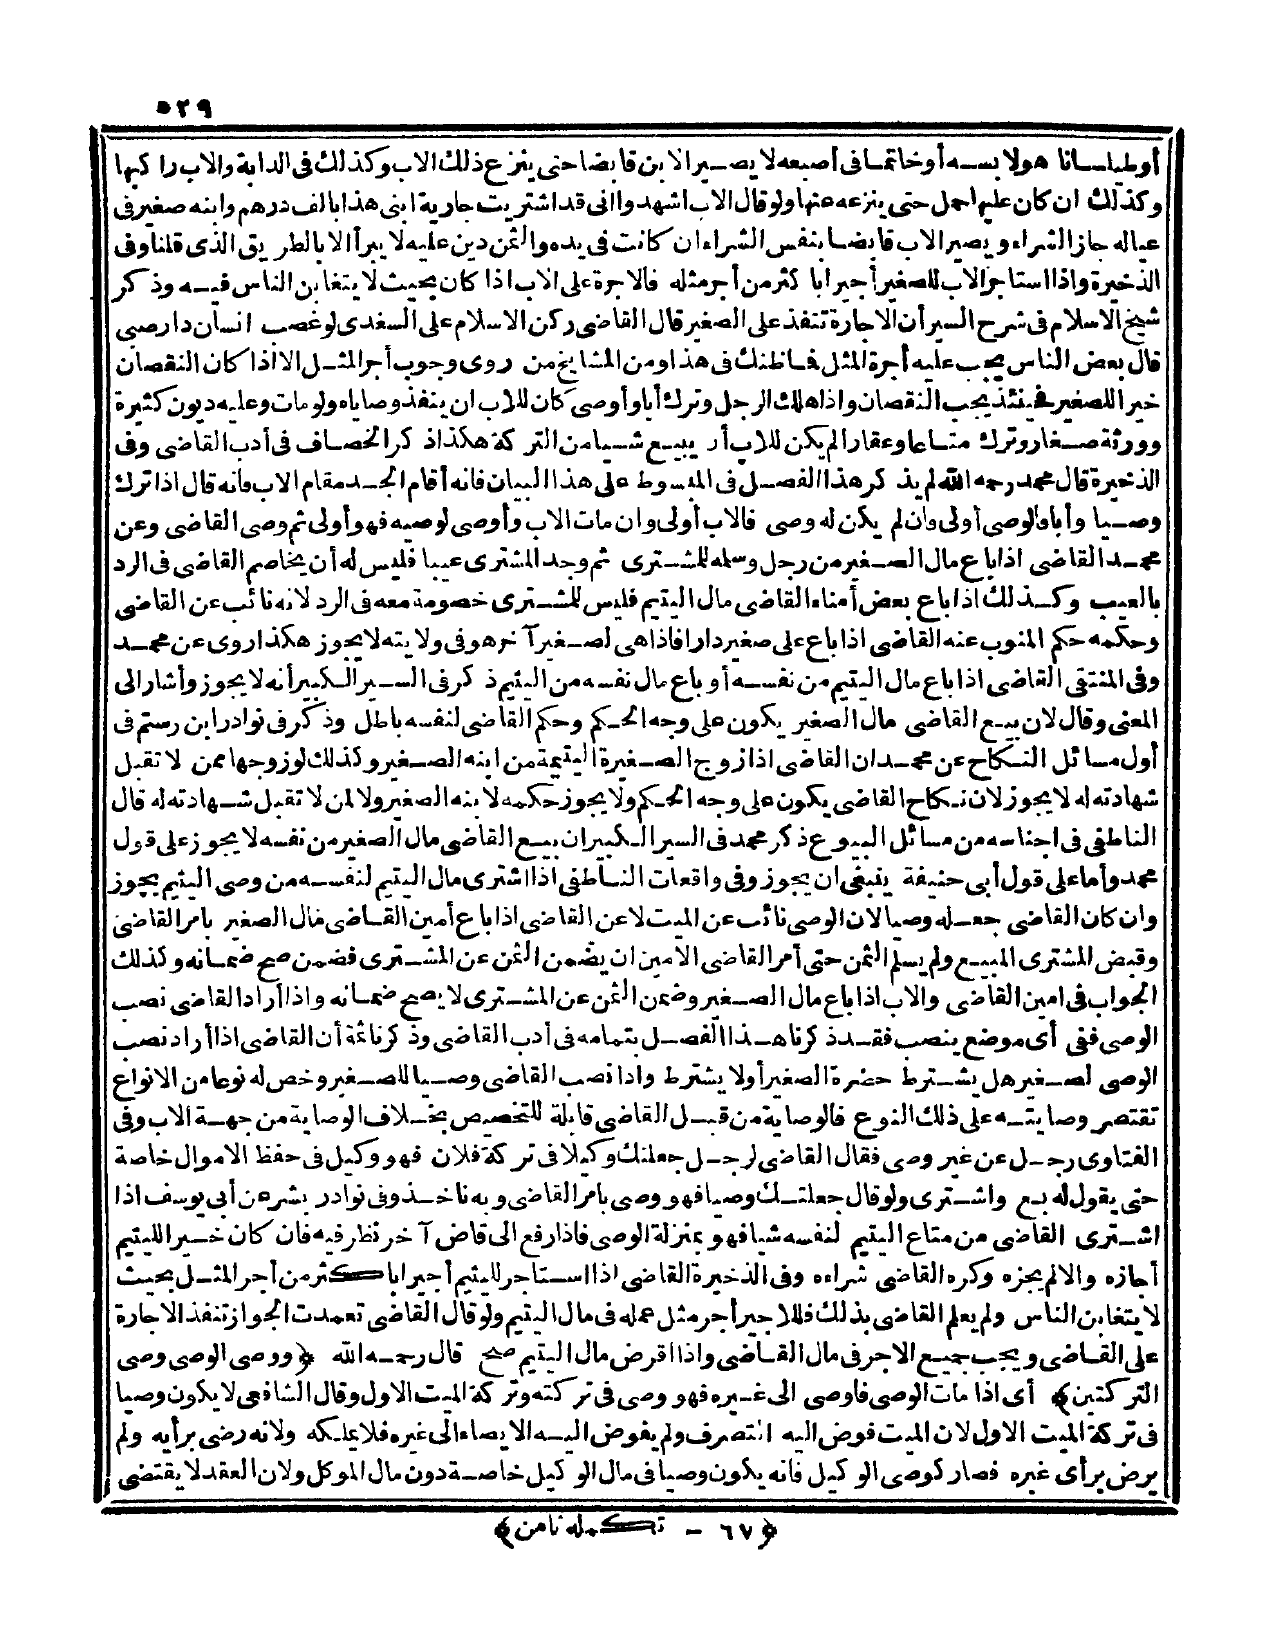 ٥٢٩
أو طيلسانا هو لابسه أو خاتما فى أصبعه لا يصير الابن قابضا حتى ينزع ذلك الاب وكذلك فى الدابة والاب راكبها
وكذلك ان كان عليها حمل حتى ينزعه عنها ولو قال الاب اشهدوا انى قد اشتريت جارية ابنى هذا بالف درهم وابنه صغير فى
عياله جاز الشراء ويصير الاب قابضا بنفس الشراء ان كانت فى يده والثمن دين عليه لا يبرأ الا بالطريق الذى قلنا وفى
الذخيرة واذا استاجر الاب للصغير أجيرا باكثر من أجر مثله فالاجرة على الاب اذا كان بحيث لا يتغابن الناس فيه وذكر
شيخ الاسلام فى شرح السير أن الاجارة تنفذ على الصغير قال القاضى ركن الاسلام على السغدى لو غصب انسان دار صبى
قال بعض الناس يجب عليه أجرة المثل فما ظنك فى هذا ومن المشايخ من روى وجوب أجر المثل الا اذا كان النقصان
خيرا للصغير فحينئذ يجب النقصان واذا هلك الرجل وترك أبا وأوصى كان للاب ان ينفذ وصاياه ولو مات وعليه ديون كثيرة
وورثة صغار وترك متاعا وعقارا لم يكن للاب أن يبيع شيا من التركة هكذا ذكر الخصاف فى أدب القاضى وفى
الذخيرة قال محمد رحمه الله لم يذكر هذا الفصل فى المبسوط على هذا البيان فانه أقام الجد مقام الاب فانه قال اذا ترك
وصيا وأبا فالوصى أولى وان لم يكن له وصى فالاب أولى وان مات الاب وأوصى لوصيه فهو أولى ثم وصى القاضى وعن
محمد القاضى اذا باع مال الصغير من رجل وسلمه للمشترى ثم وجد المشترى عيبا فليس له أن يخاصم القاضى فى الرد
بالعيب وكذلك اذا باع بعض أمناء القاضى مال اليتيم فليس للمشترى خصومة معه فى الرد لانه نائب عن القاضى
وحكمه حكم المنوب عنه القاضى اذا باع على صغير دارا فاذا هى لصغير آخر هو فى ولايته لا يجوز هكذا روى عن محمد
وفى المنتقى القاضى اذا باع مال اليتيم من نفسه أو باع مال نفسه من اليتيم ذكر فى السير الكبير أنه لا يجوز وأشار الى
المعنى وقال لان بيع القاضى مال الصغير يكون على وجه الحكم وحكم القاضى لنفسه باطل وذكر فى نوادر ابن رستم فى
أول مسائل النكاح عن محمد ان القاضى اذا زوج الصغيرة اليتيمة من ابنه الصغير وكذلك لو زوجها ممن لا تقبل
شهادته له لا يجوز لان نكاح القاضى يكون على وجه الحكم ولا يجوز حكمه لابنه الصغير ولا لمن لا تقبل شهادته له قال
الناطفى فى اجناسه من مسائل البيوع ذكر محمد فى السير الكبير ان بيع القاضى مال الصغير من نفسه لا يجوز على قول
محمد وأما على قول أبى حنيفة ينبغى ان يجوز وفى واقعات الناطفى اذا اشترى مال اليتيم لنفسه من وصى اليتيم يجوز
وان كان القاضى جعله وصيا لان الوصى نائب عن الميت لا عن القاضى اذا باع أمين القاضى مال الصغير بامر القاضى
وقبض المشترى المبيع ولم يسلم الثمن حتى أمر القاضى الامين ان يضمن الثمن عن المشترى فضمن صح ضمانه وكذلك
الجواب فى امين القاضى والاب اذا باع مال الصغير وضمن الثمن عن المشترى لا يصح ضمانه واذا أراد القاضى نصب
الوصى ففى أى موضع ينصب فقد ذكرنا هذا الفصل بتمامه فى أدب القاضى وذكرنا ثمة أن القاضى اذا أراد نصب
الوصى لصغير هل يشترط حضرة الصغير أو لا يشترط واذا نصب القاضى وصيا للصغير وخص له نوعا من الانواع
تقتصر وصايته على ذلك النوع فالوصاية من قبل القاضى قابلة للتخصيص بخلاف الوصاية من جهة الاب وفى
الفتاوى رجل عن غير وصى فقال القاضى لرجل جعلتك وكيلا فى تركة فلان فهو وكيل فى حفظ الاموال خاصة
حتى يقول له بع واشترى ولو قال جعلتك وصيا فهو وصى بامر القاضى وبه ناخذ وفى نوادر بشر عن أبى يوسف اذا
اشترى القاضى من متاع اليتيم لنفسه شيا فهو بمنزلة الوصى فاذا رفع الى قاض آخر نظر فيه فان كان خيرا لليتيم
أجازه والا لم يجزه وكره القاضى شراءه وفى الذخيرة القاضى اذا استاجر لليتيم أجيرا باكثر من أجر المثل بحيث
لا يتغابن الناس ولم يعلم القاضى بذلك فللاجير أجر مثل عمله فى مال اليتيم ولو قال القاضى تعمدت الجواز تنفذ الاجارة
على القاضى ويجب جميع الاجر فى مال القاضى واذا اقرض مال اليتيم صح قال رحمه الله ﴿ووصى الوصى وصى
التركتين﴾ أى اذا مات الوصى فاوصى الى غيره فهو وصى فى تركته وتركة الميت الاول وقال الشافعى لا يكون وصيا
فى تركة الميت الاول لان الميت فوض اليه التصرف ولم يفوض اليه الايصاء الى غيره فلا يملكه ولانه رضى برأيه ولم
يرض برأى غيره فصار كوصى الوكيل فانه يكون وصيا فى مال الوكيل خاصة دون مال الموكل ولان العقد لا يقتضى
﴿٦٧ - تكمله ثامن﴾